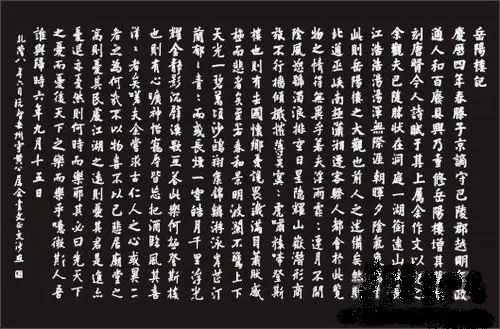 岳陽樓記
慶曆四年春滕子京謫守巴陵郡越明年政
通人和百廢具興乃重修岳陽樓增其舊
刻唐賢今人詩賦于其上屬余作文以記之
余觀夫巴陵勝狀在洞庭一湖銜遠山
江浩浩湯湯橫無際涯朝暉夕陰氣象萬
此則岳陽樓之大觀也前人之述備矣然則
北通巫峽南極瀟湘遷客騷人都會於此覽
物之情得無異乎若夫淫雨霏〻連月不開
陰風怒號濁浪排空日星隱耀山嶽潛形商
旅不行檣傾楫摧薄暮冥〻虎嘯猿啼登斯
樓也則有去國懷鄉憂讒畏譏滿目蕭然感
極而悲者矣至若春和景明波瀾不驚上下
天光一碧萬頃沙鷗翔集錦鱗游泳岸芷汀
蘭郁〻青〻而或長煙一空皓月千里浮光
耀金靜影沉璧漁歌互答此樂何極登斯樓
也則有心曠神怡寵辱皆忘把酒臨風其喜
洋〻者矣嗟夫余嘗求古仁人之心或異二
者之為何哉不以物喜不以己悲居廟堂之
高則憂其民處江湖之遠則憂其君是進亦
憂退亦憂然則何時而樂耶其必曰先天下
之憂而憂後天下之樂而樂乎噫微斯人吾
誰與歸時六年九月十五日